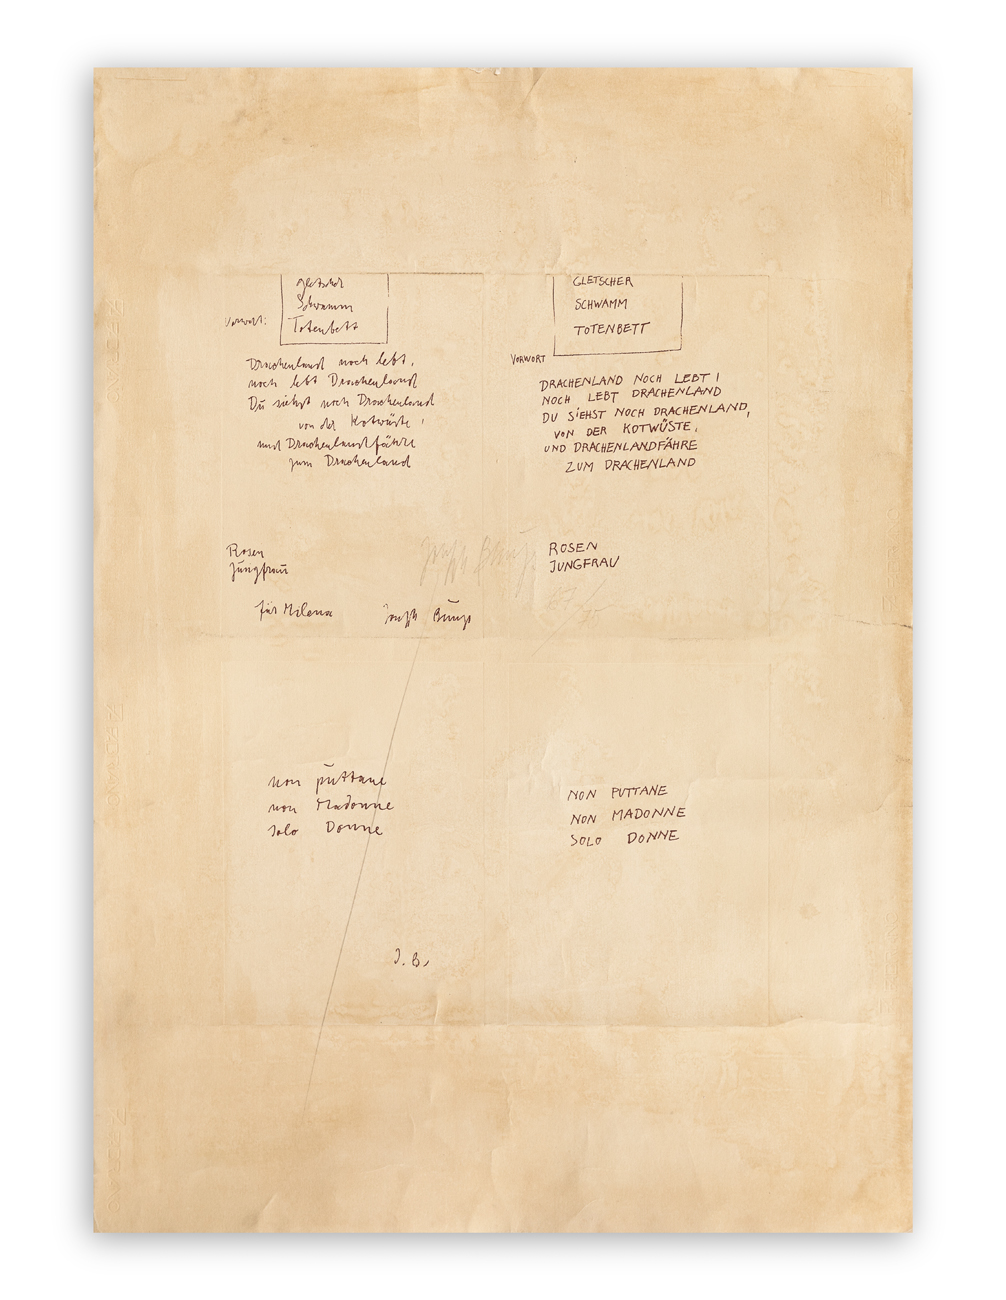 gletscher
Schwamm
Vorwort: Totenbett
Drachenland noch lebt,
noch lebt Drachenland
Du siehst noch Drachenland
von der Kotwüste,
und Drachenlandfähre
zum Drachenland
Rosen
Jungfrau
für Milena
Joseph Beuys
GLETSCHER
SCHWAMM
TOTENBETT
VORWORT
DRACHENLAND NOCH LEBT !
NOCH LEBT DRACHENLAND
DU SIEHST NOCH DRACHENLAND,
VON DER KOTWÜSTE,
UND DRACHENLANDFÄHRE
ZUM DRACHENLAND
Joseph Beuys
ROSEN
JUNGFRAU
non puttane
non Madonne
solo Donne
J. B.
NON PUTTANE
NON MADONNE
SOLO DONNE